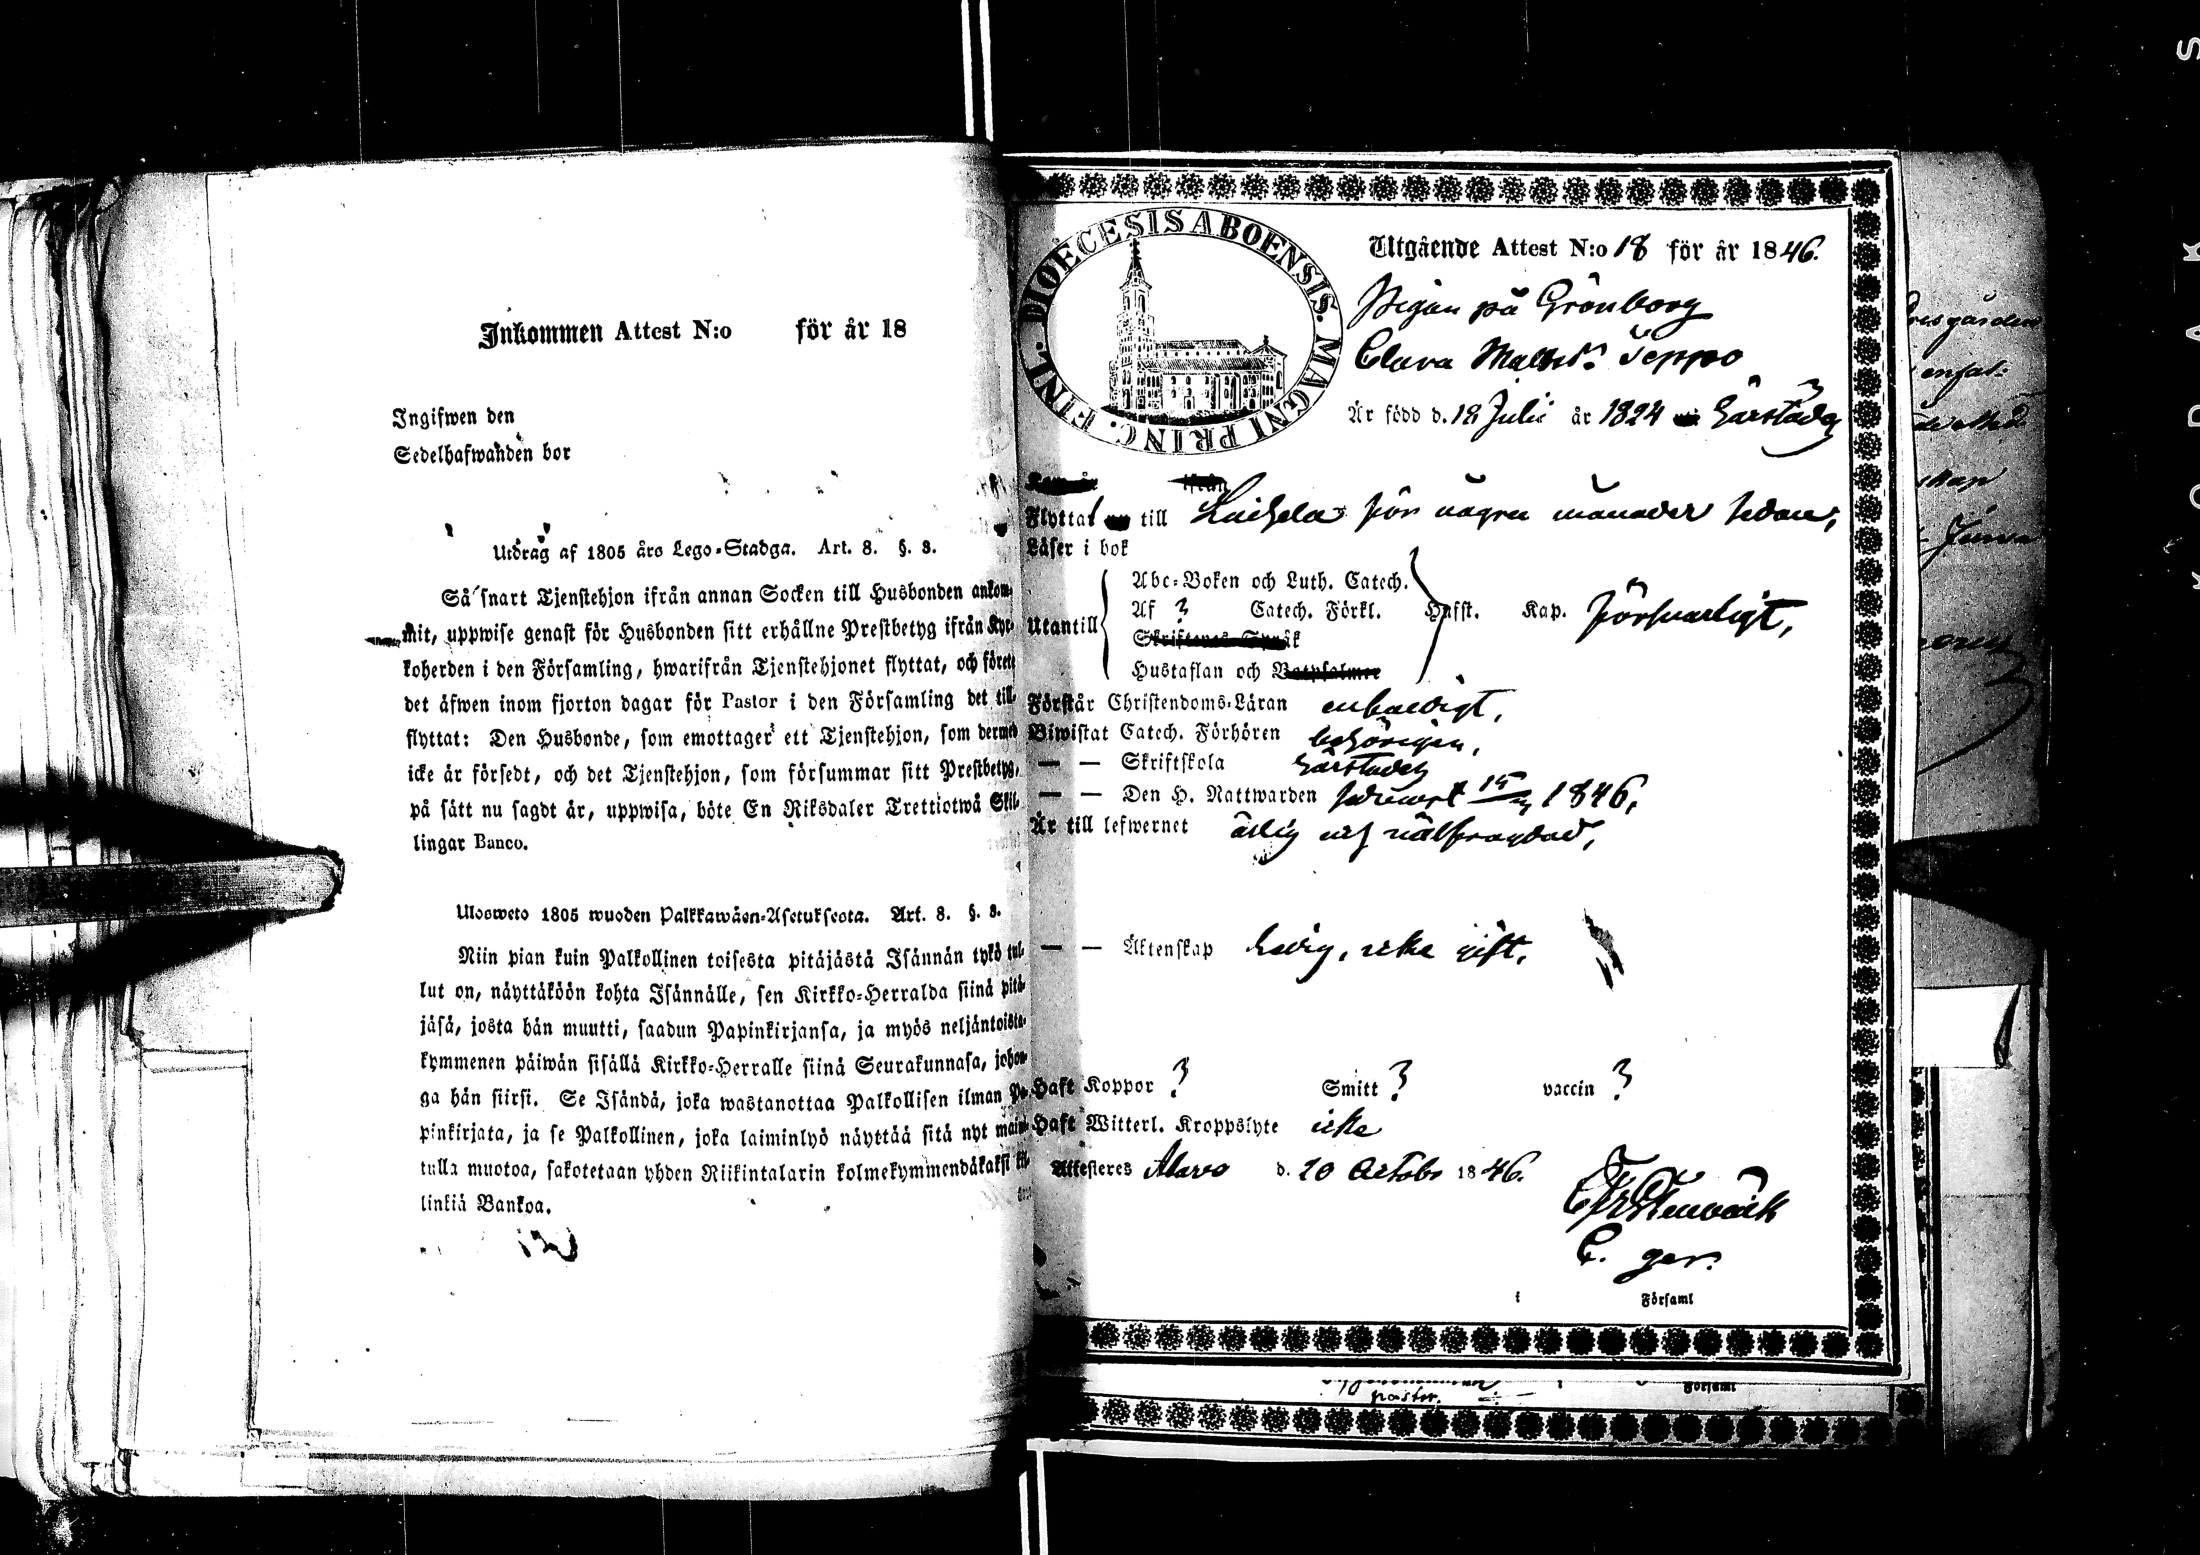 Inkommen Attest N:o för år 18
Ingifwen den
Sedelhafwanden bor
Utdrag af 1805 års Lego-Stadga. Art. 8. §. 8.
Så snart Tjenstehjon ifrån annan Socken till Husbonden ankom-
mit, uppwise genast för Husbonden sitt erhållne Prestbetyg ifrån Kyr-
koherden i den Församling, hwarifrån Tjenstehjonet flyttat, och förete
det äfwen inom fjorton dagar för Pastor i den Församling det till-
flyttat: Den Husbonde, som emottager ett Tjenstehjon, som dermed
icke är försedt, och det Tjenstehjon, som försummar sitt Prestbetyg,
på sätt nu sagdt är, uppwisa, böte En Riksdaler Trettiotwå Skil-
lingar Banco.
Ulosweto 1805 wuoden Palkkawäen-Asetuksesta. Art. 8. §. 8.
Niin pian kuin Palkollinen toisesta pitäjästä Isännän tykö tul-
lut on, näyttäköön kohta Isännälle, sen Kirkko-Herralda siinä pitä-
jäsä, josta hän muutti, saadun Papinkirjansa, ja myös neljäntoista-
kymmenen päiwän sisällä Kirkko-Herralle siinä Seurakunnasa, johon-
ga hän siirsi. Se Isändä, joka wastanottaa Palkollisen ilman Pa-
pinkirjata, ja se Palkollinen, joka laiminlyö näyttää sitä nyt maini-
tulla muotoa, sakotetaan yhden Riikintalarin kolmekymmendäkaksi kil-
linkiä Bankoa.
DIOECESIS ABOENSIS. MAGNI PRINC. FINL.
Utgående Attest N:o 18 för år 1846.
Pigan på Grönborg
Clara Matsd. Seppo
Är född d. 18 Julii år 1824
Flyttat till för några månader sedan,
Läser i bok
Utantill
Abc-Boken och Luth. Catech.
Af ? Catech. Förkl. Hufst. Kap. försvarligt,
Hustaflan och
Förstår Christendoms-Läran enfaldigt,
Biwistat Catech. Förhören behörigen,
— — Skriftskola
— — Den H. Nattwarden senast 1846,
Är till lefwernet ärlig och välfrägdad,
— — Äktenskap ledig, icke gift,
Haft Koppor ? Smitt ? vaccin ?
Haft Witterl. Kroppslyte icke
Attesteres Alavo d. 20 Octobr 1846.
Församl
pastor.
Församl
KODAK S